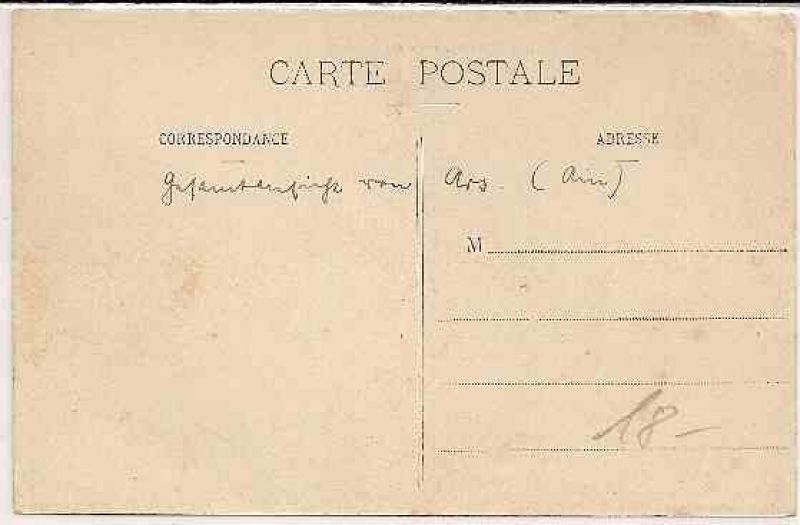 CARTE POSTALE
CORRESPONDANCE
ADRESSE
Gesamtansicht von Ars. (Ain)
M
18-